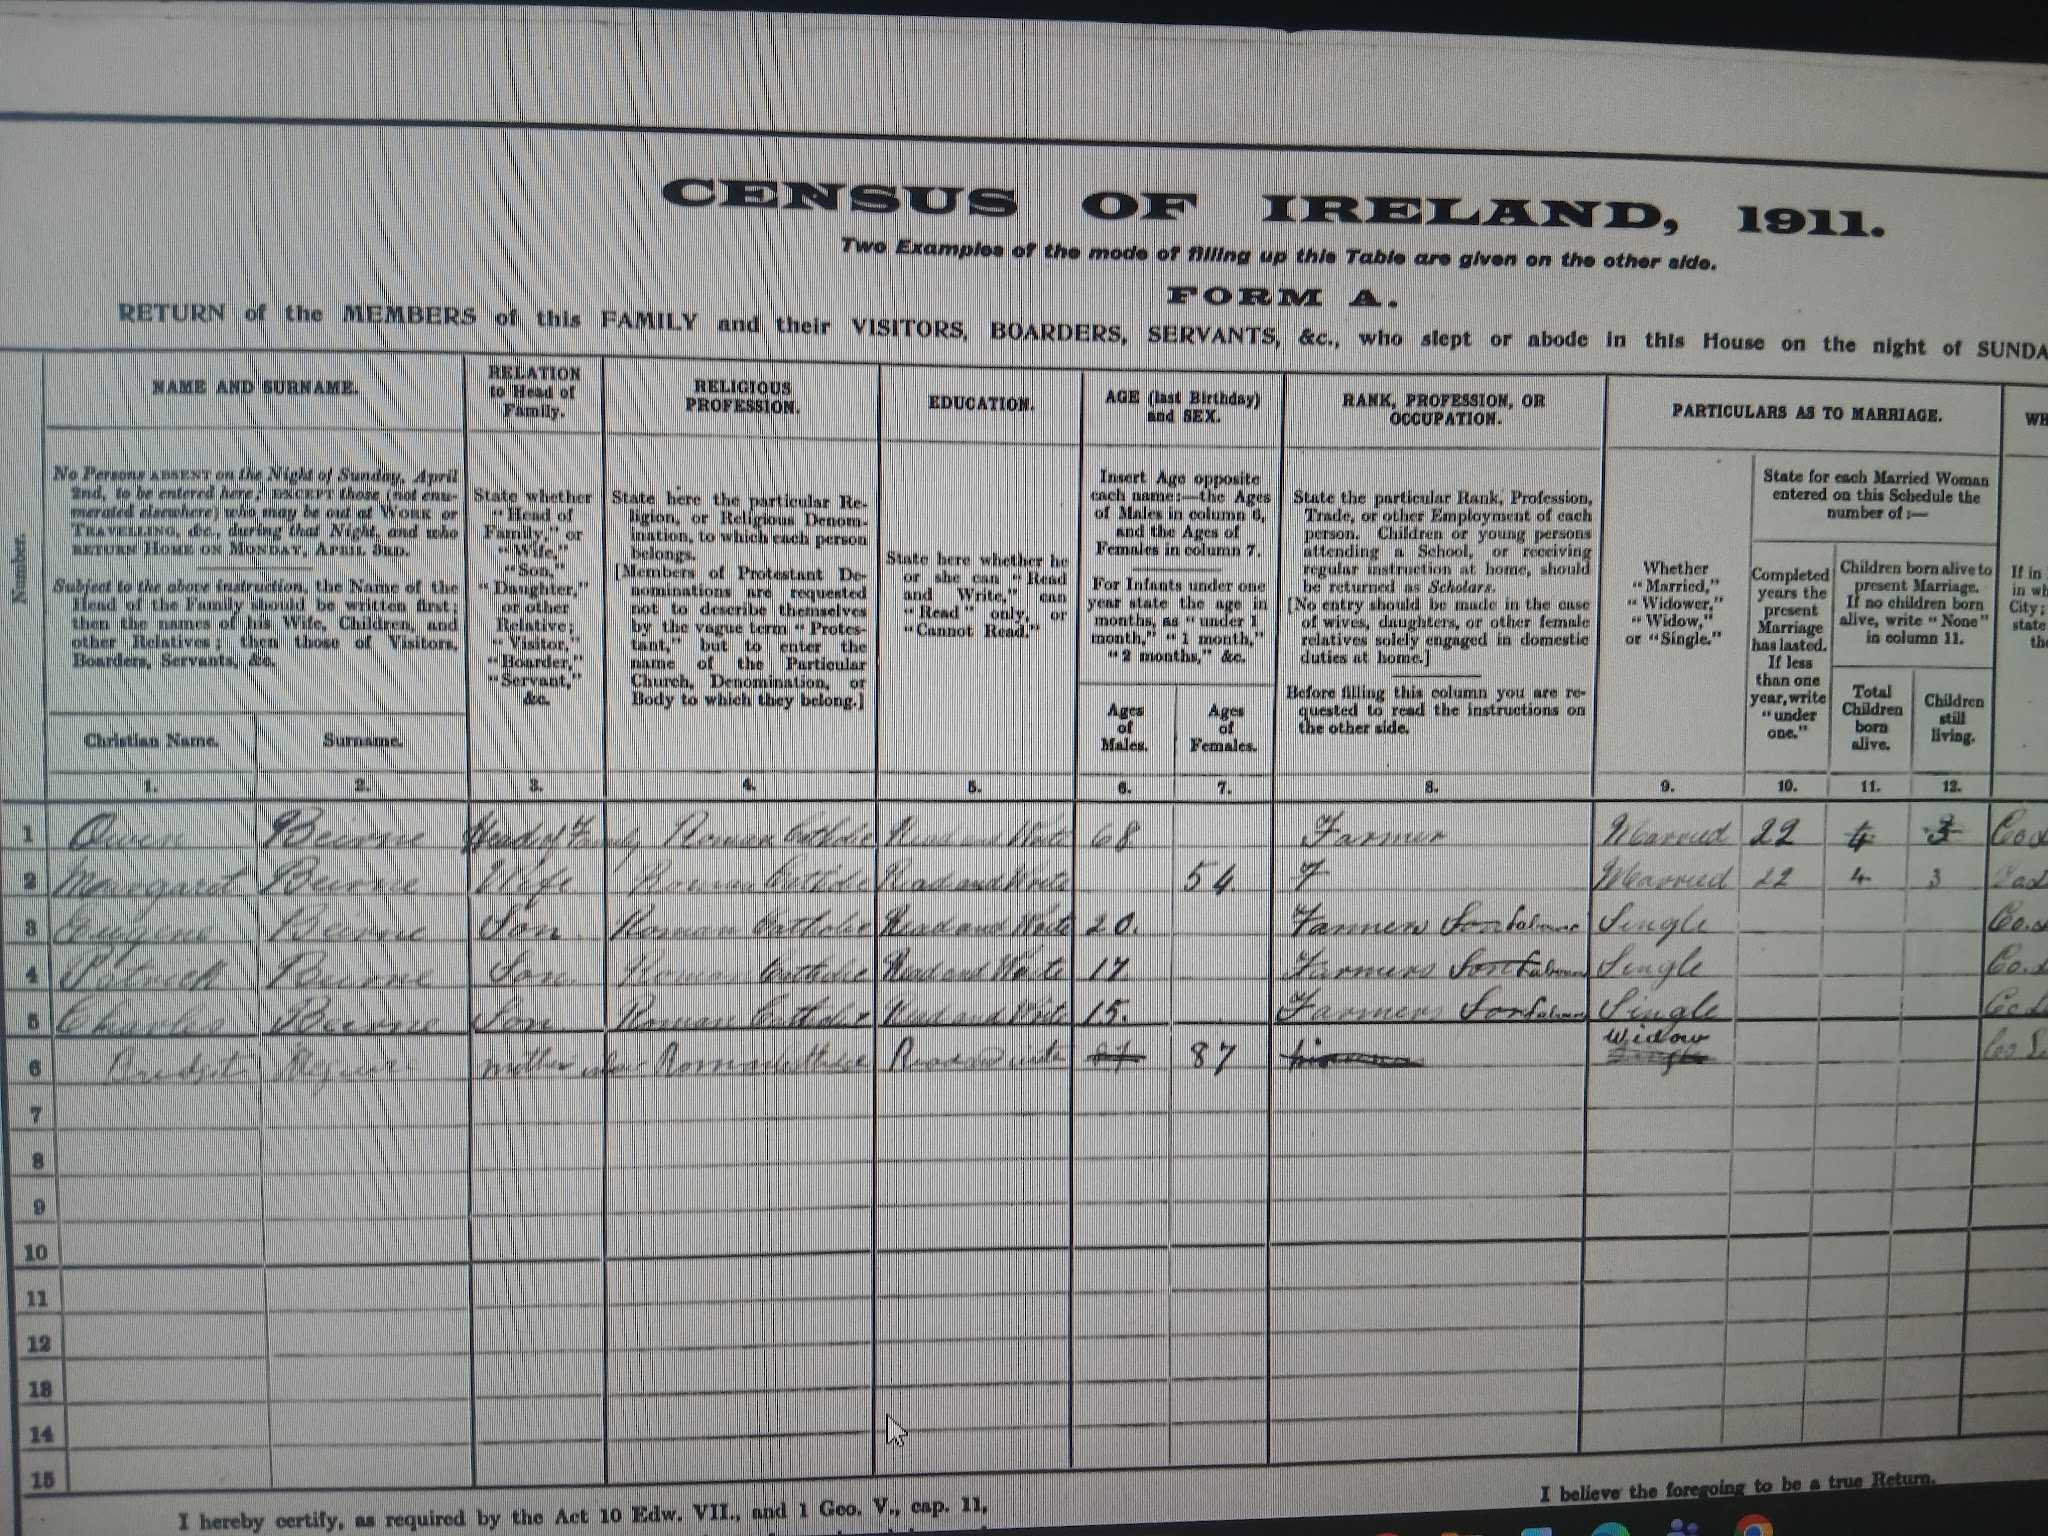 CENSUS OF IRELAND, 1911.
Two Examples of the mode of filling up this Table are given on the other side.
FORM A.
RETURN of the MEMBERS of this FAMILY and their VISITORS, BOARDERS, SERVANTS, &c., who slept or abode in this House on the night of SUNDA
Number.
NAME AND SURNAME.
No Persons ABSENT on the Night of Sunday, April
2nd, to be entered here; EXCEPT those (not enu-
merated elsewhere) who may be out at WORK or
TRAVELLING, &c., during that Night, and who
RETURN HOME ON MONDAY, APRIL 3RD.
Subject to the above instruction, the Name of the
Head of the Family should be written first;
then the names of his Wife, Children, and
other Relatives; then those of Visitors,
Boarders, Servants, &c.
Christian Name.
Surname.
RELATION
to Head of
Family.
State whether
"Head of
Family," or
"Wife,"
"Son,"
"Daughter,"
or other
Relative;
"Visitor,"
"Boarder,"
"Servant,"
&c.
RELIGIOUS
PROFESSION.
State here the particular Re-
ligion, or Religious Denom-
ination, to which each person
belongs.
[Members of Protestant De-
nominations are requested
not to describe themselves
by the vague term "Protes-
tant," but to enter the
name of the Particular
Church, Denomination, or
Body to which they belong.]
EDUCATION.
State here whether he
or she can "Read
and Write," can
"Read" only, or
"Cannot Read."
AGE (last Birthday)
and SEX.
Insert Age opposite
each name:—the Ages
of Males in column 6,
and the Ages of
Females in column 7.
For Infants under one
year state the age in
months, as "under 1
month," "1 month,"
"2 months," &c.
Ages
of
Males.
Ages
of
Females.
RANK, PROFESSION, OR
OCCUPATION.
State the particular Rank, Profession,
Trade, or other Employment of each
person. Children or young persons
attending a School, or receiving
regular instruction at home, should
be returned as Scholars.
[No entry should be made in the case
of wives, daughters, or other female
relatives solely engaged in domestic
duties at home.]
Before filling this column you are re-
quested to read the instructions on
the other side.
PARTICULARS AS TO MARRIAGE.
Whether
"Married,"
"Widower,"
"Widow,"
or "Single."
State for each Married Woman
entered on this Schedule the
number of:—
Completed
years the
present
Marriage
has lasted.
If less
than one
year, write
"under
one."
Children born alive to
present Marriage.
If no children born
alive, write "None"
in column 11.
Total
Children
born
alive.
Children
still
living.
WH
If in
in wh
City;
state
the
1. 2. 3. 4. 5. 6. 7. 8. 9. 10. 11. 12.
1 Owen Beirne Head of Family Roman Catholic Read and Write 68 Farmer Married 22 4 3 Co
2 Margaret Beirne Wife Roman Catholic Read and Write 54 F Married 22 4 3
3 Eugene Beirne Son Roman Catholic Read and Write 20. Farmers Son Single Co.
4 Patrick Beirne Son Roman Catholic Read and Write 17 Farmers Son Single Co.
5 Charles Beirne Son Roman Catholic Read and Write 15. Farmers Son Single Co
6 Bridget mother in law Roman Catholic Read and write 87 Widow Co
7
8
9
10
11
12
13
14
15
I hereby certify, as required by the Act 10 Edw. VII., and 1 Geo. V., cap. 11,
I believe the foregoing to be a true Return.